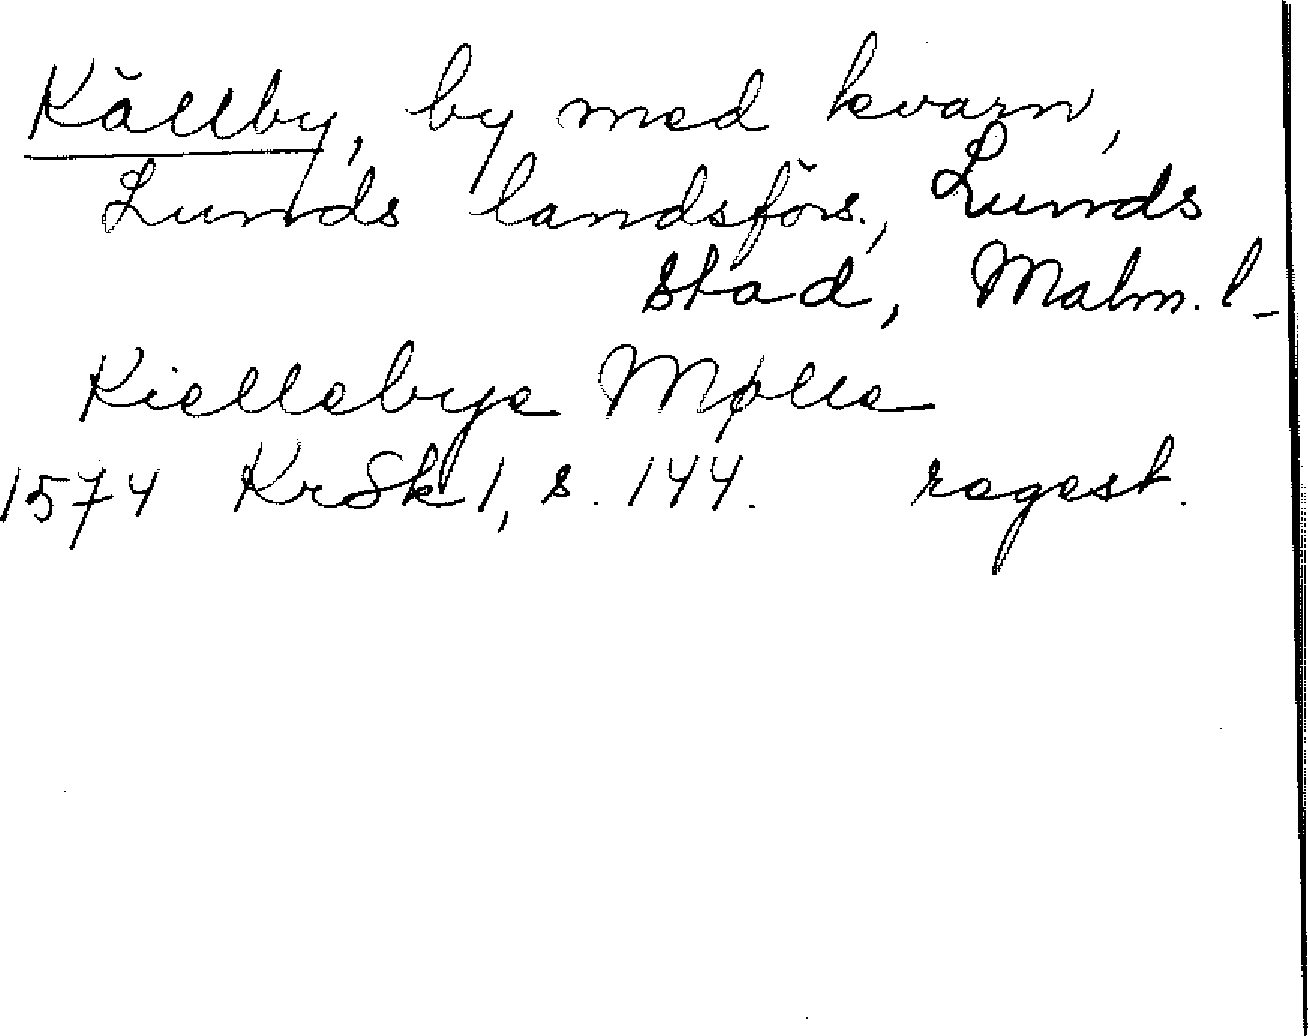 Källby, by med kvarn,
Lunds landsförs., Lunds
stad, Malm. l-
Kiellebye Mølle
1574 KrSk 1, s. 144. regest.